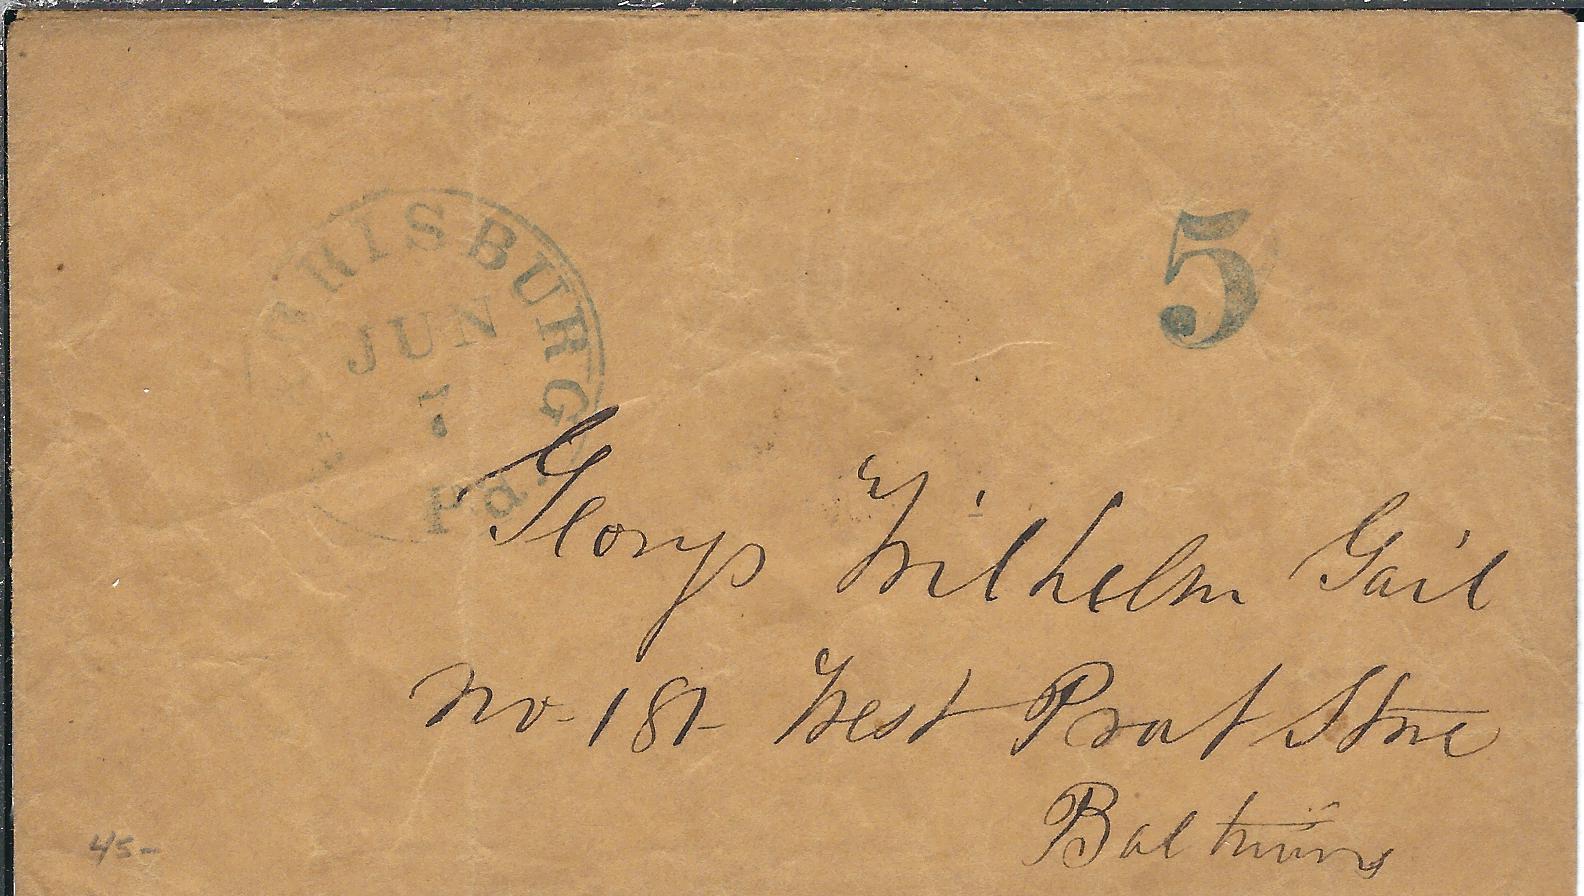 ARRISBURG Pa.
JUN
7
5
Georg Wilhelm Gail
No. 181 West Prat Stree
Baltimore
45-